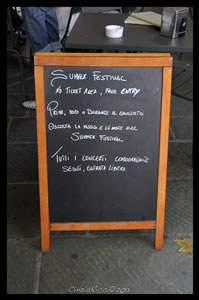 Summer Festival
No Ticket Area, Free Entry
Prima, dopo o durante il concerto
Ascolta la musica e le note del
Summer Festival
Tutti i concerti comodamente
seduti, entrata libera